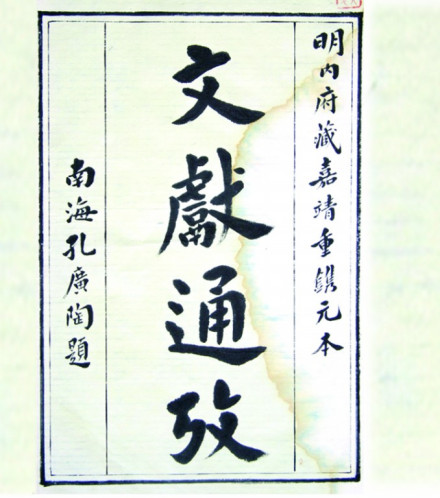 明内府藏嘉靖重鐫元本
文獻通攷
南海孔廣陶題